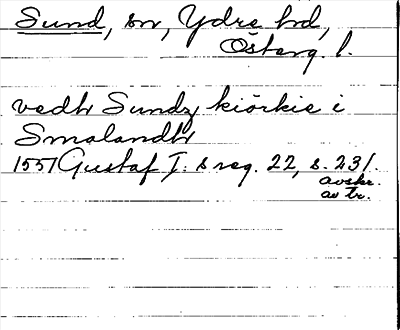 Sund, sn, Ydre hd,
Österg. l.
vedh Sundz kiörkie i
Smalandh
1551 Gustaf I:s reg. 22, s. 231.
avskr.
av tr.